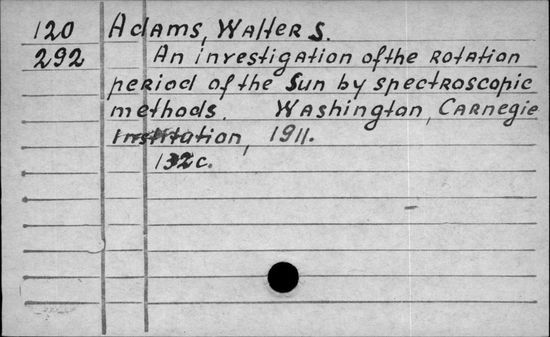 120 Adams, Walter S.
292 An investigation of the rotation
period of the Sun by spectroscopic
methods. Washington, Carnegie
Institution, 1911.
132 c.